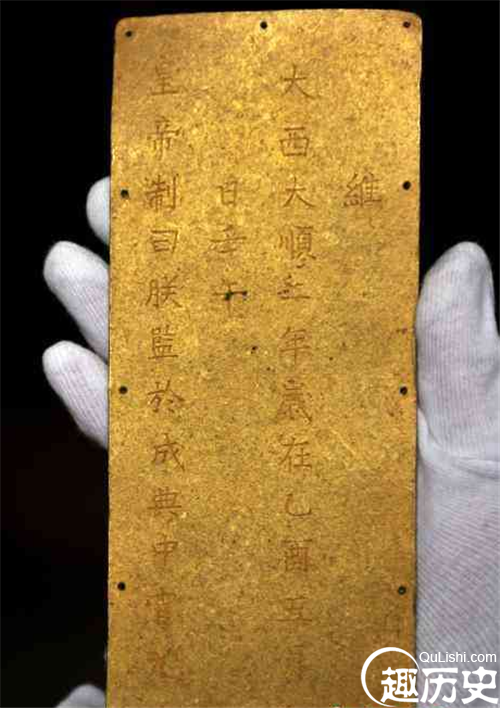 維
大西大順二年歲在乙酉五
日壬午
皇帝制曰朕監於成典中
QuLishi.com
趣历史